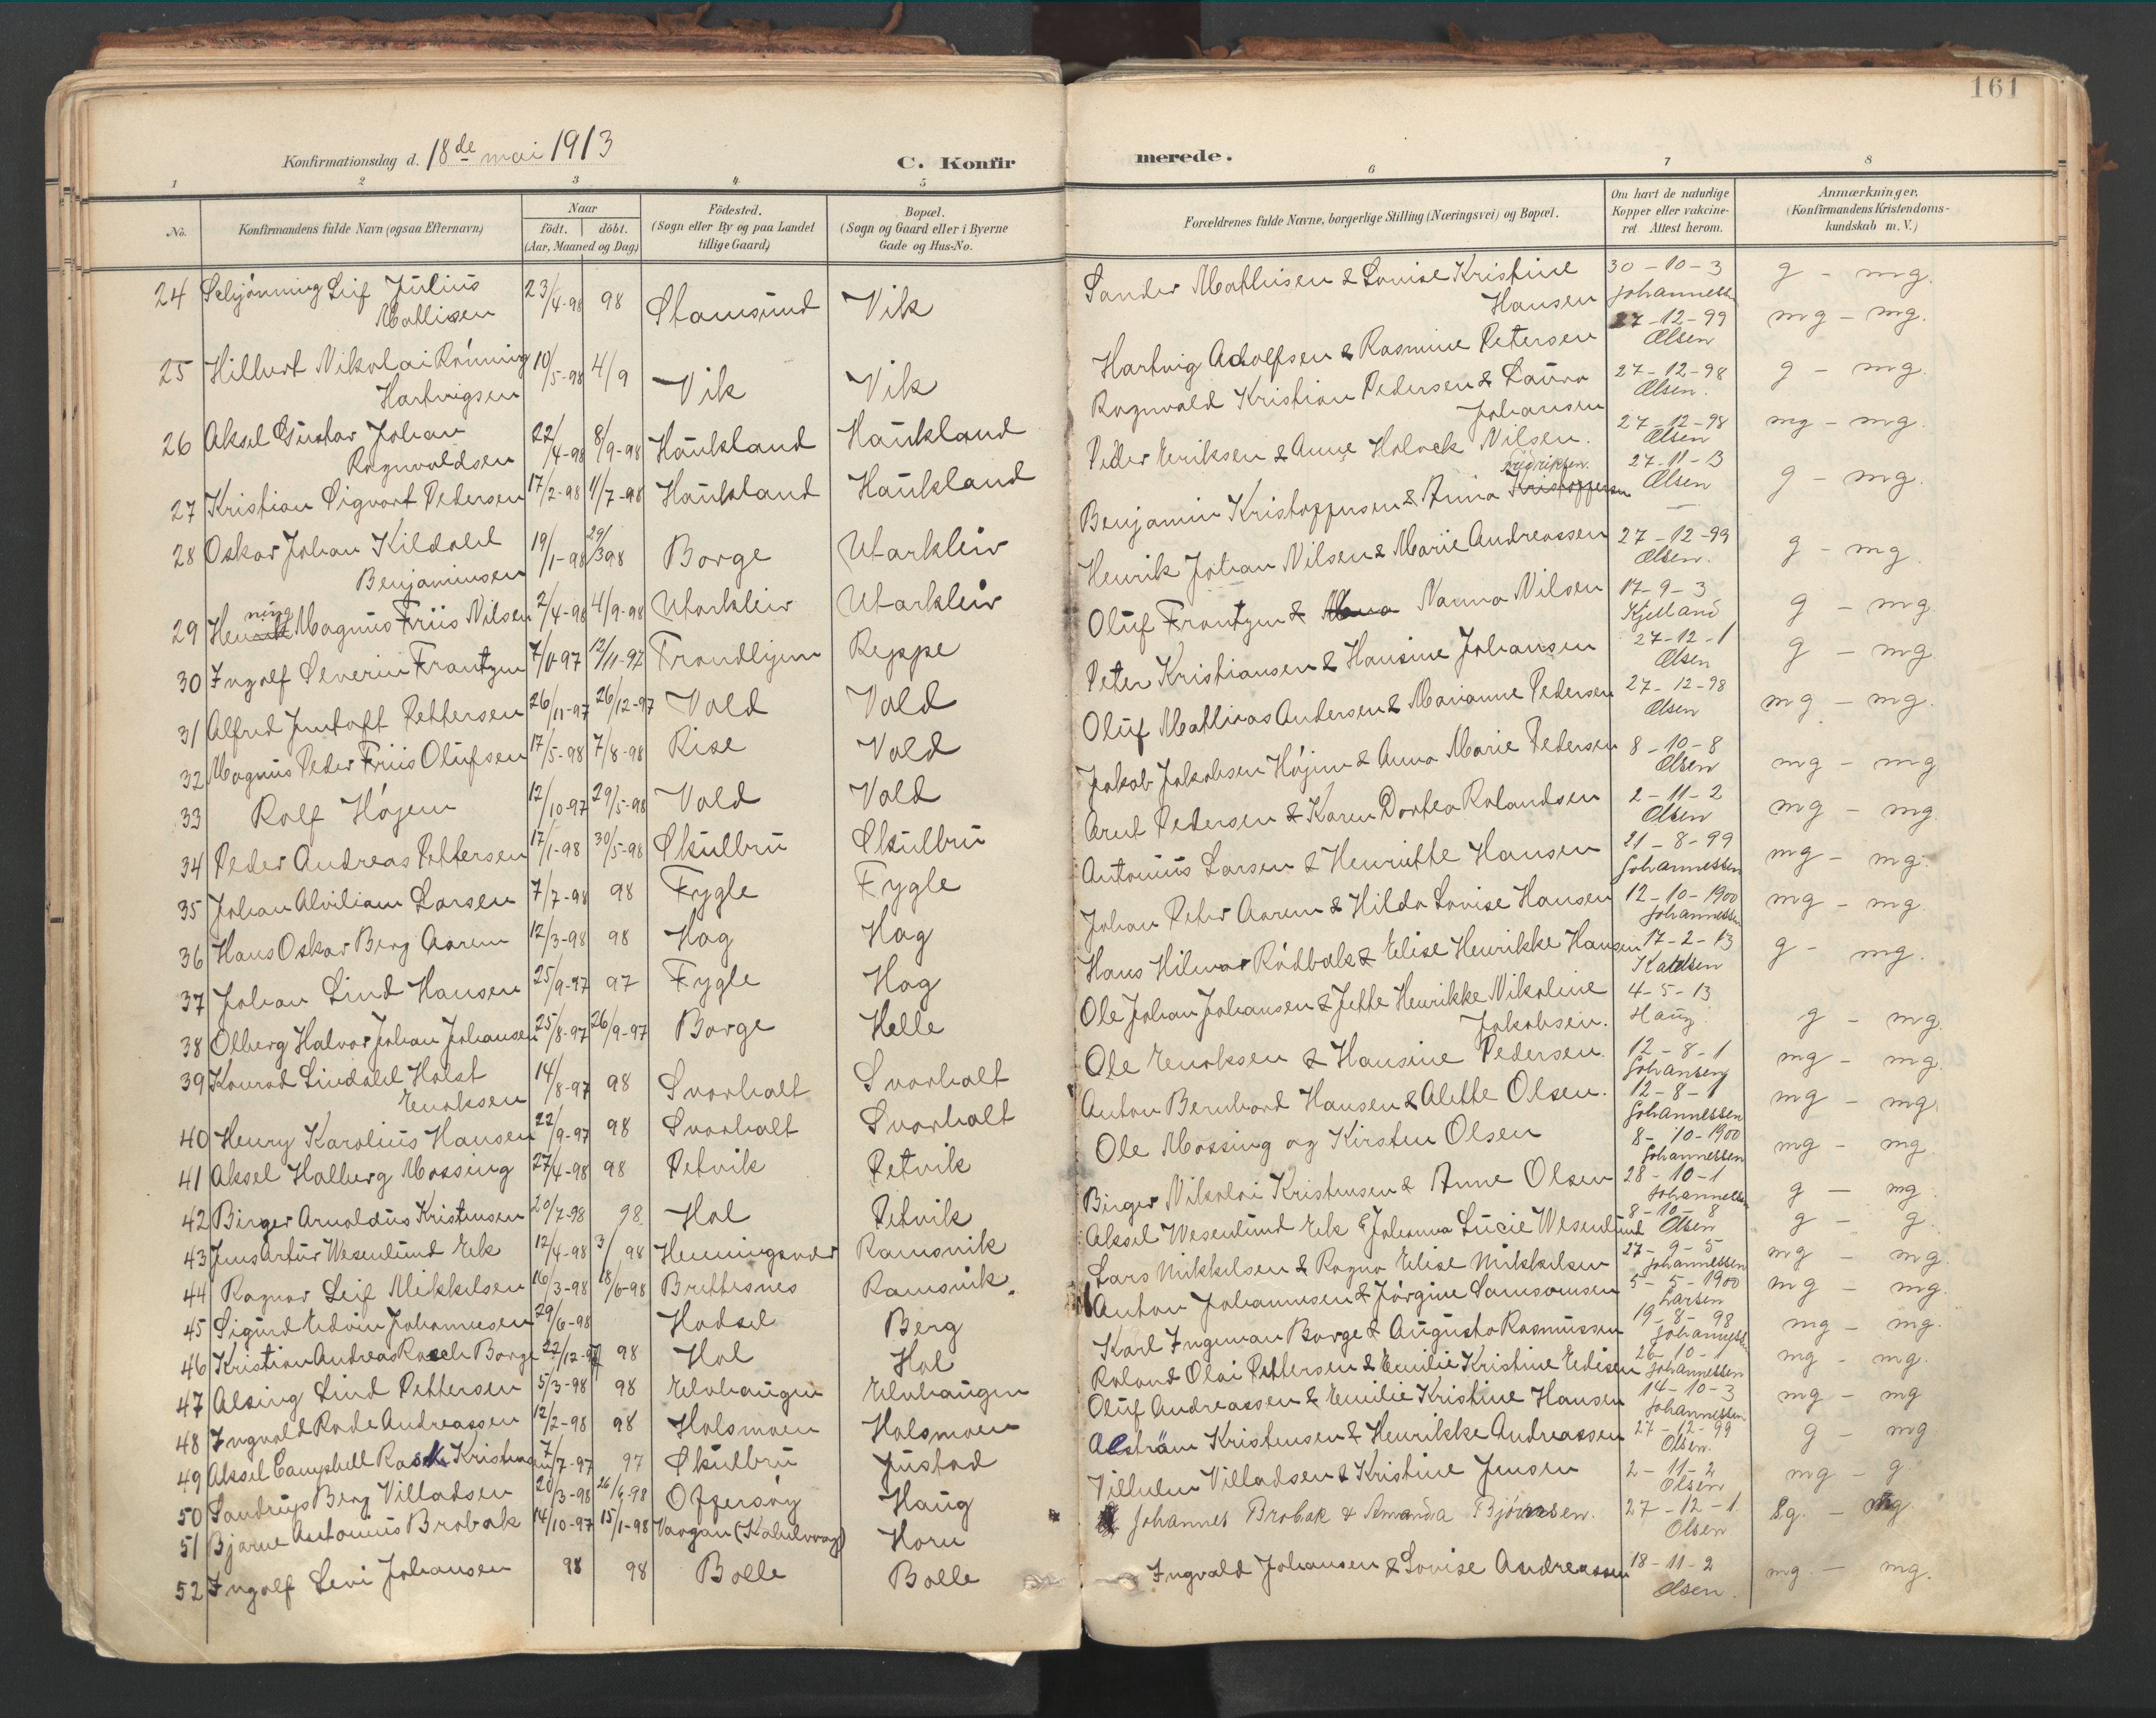 161
Konfirmationsdag d. 18de mai 1913
C. Konfirmerede.
1 2 3 4 5 6 7 8
No.
Konfirmandens fulde Navn (ogsaa Efternavn)
Naar
födt. döbt.
(Aar, Maaned og Dag)
Födested.
(Sogn eller By og paa Landet
tillige Gaard)
Bopæl.
(Sogn og Gaard eller i Byerne
Gade og Hus-No.
Forældrenes fulde Navne, borgerlige Stilling (Næringsvei) og Bopæl.
Om havt de naturlige
Kopper eller vakcine-
ret. Attest herom.
Anmærkninger.
(Konfirmandens Kristendoms-
kundskab m. V.)
24 Schjönning Leif Julius 23/4-98 98 Stamsund Vik Sander Mathisen & Lovise Kristine 30-10-3 g - mg.
Mathisen Hansen Johannessen
25 Hilbert Nikolai Rönning 10/5-98 4/9 Vik Vik Hartvig Adolfsen & Rasmine Petersen 27-12-99 mg - mg.
Hartvigsen Olsen
26 Aksel Gustav Johan 22/4-98 8/9-98 Haukland Haukland Ragnvald Kristian Pedersen & Laura 27-12-98 g - mg.
Ragnvaldsen Johansen Olsen.
27 Kristian Sigvart Pedersen 17/2-98 11/7-98 Haukland Haukland Peder Eriksen & Anne Holock Nilsen. 27-12-98 mg - mg.
Olsen
28 Oskar Johan Kildahl 19/1-98 29/3 98 Borge Utakleiv Benjamin Kristoffersen & Anna Kristoffersen Fredriksen. 27-11-13 g - mg.
Benjaminsen Olsen
29 Henrik ning Magnus Friis Nilsen 2/4-98 4/9-98 Utakleiv Utakleiv Henrik Johan Nilsen & Marie Andreassen 27-12-99 g - mg.
Olsen.
30 Ingolf Severin Frantzen 7/11-97 12/11-97 Trondhjem Reppe Oluf Frantzen & Nanna Nilsen 17-9-3 g - mg
Kjelland
31 Alfred Jentoft Pettersen 26/11-97 26/12-97 Vold Vold Peter Kristiansen & Hansine Johansen 27-12-1 g - mg
Olsen
32 Magnus Peder Friis Olufsen 17/5-98 7/8-98 Rise Vold Oluf Mathias Andersen & Marianne Pedersen 27-12-98 mg - mg.
Olsen
33 Rolf Höjem 12/10-97 29/5-98 Vold Vold Jakob Jakobsen Höjem & Anna Marie Pedersen 8-10-8 mg - mg
Olsen
34 Peder Andreas Pettersen 17/1-98 30/5-98 Skulbru Skulbru Arnt Pedersen & Karen Dortea Rolandsen 2-11-2 mg - mg.
Olsen
35 Johan Alviliam Larsen 7/7-98 98 Fygle Fygle Antonius Larsen & Henriette Hansen 21-8-99 mg - mg.
Johannessen
36 Hans Oskar Berg Aarem 12/3-98 98 Hag Hag Johan Peter Aarem & Hilda Lovise Hansen 12-10-1900 mg - mg.
Johannessen
37 Johan Lind Hansen 25/9-97 97 Fygle Hag Hans Hilmar Rödbak & Elise Henrikke Hansen 17-2-13 g - mg.
38 Olberg Halvor Johan Johansen 25/8-97 26/9-97 Borge Helle Ole Johan Johansen & Jette Henrikke Nikoline 4-5-13 g - mg.
Jakobsen. Haug
39 Konrad Lindahl Holst 14/8-97 98 Svarholt Svarholt Ole Enoksen & Hansine Pedersen. 12-8-1 mg - mg.
Enoksen
40 Henry Karolius Hansen 22/9-97 98 Svarholt Svarholt Anton Bernhard Hansen & Alette Olsen. 12-8-1 mg - mg.
Johannessen
41 Aksel Halberg Mossing 27/4-98 98 Petvik Petvik Ole Mossing og Kirsten Olsen 8-10-1900 mg - mg.
Johannessen
42 Birger Arnoldus Kristensen 20/7-98 98. Hol Petvik Birger Nikolai Kristensen & Anne Olsen 28-10-1 g - mg.
Johannessen
43 Jens Artur Wesenlund Eek 12/4-98 3/ 98 Henningsvær Ramsvik Aksel Wesenlund Eek & Johanna Lucie Wesenlund 8-10-8 g - g.
Olsen
44 Ragnar Leif Mikkelsen 16/3-98 18/6-98 Brettesnes Ramsvik. Lars Mikkelsen & Ragna Elise Mikkelsen 27-9-5 mg - mg.
Johannessen
45 Sigurd Edvin Johannesen 29/6-98 Hadsel Berg Anton Johannesen & Jörgine Samsonsen 5-5-1900 mg - mg.
Larsen
46 Kristian Andreas Rasch Borge 22/12-97 98 Hol Hol Karl Ingeman Borge & Augusta Rasmussen 19-8-98 mg - mg.
Johannessen
47 Alsing Lind Pettersen 5/3-98 98 Elvhaugen Elvhaugen Roland Olai Pettersen & Emilie Kristine Edisen 26-10-1 mg - mg.
Johannessen
48 Ingvald Rode Andreassen 12/2-98 98 Holsmoen Holsmoen Oluf Andreassen & Emilie Kristine Hansen 14-10-3 mg - mg
Johannessen
49 Aksel Campbell Rask Kristensen 7/7-97 97 Skulbru Justad Alström Kristensen & Henrikke Andreassen 27-12-99 g - mg
Olsen.
50 Sandrup Berg Villadsen 20/3-98 26/6-98 Offersöy Haug Vilhelm Villadsen & Kristine Jensen 2-11-2 mg - g.
Olsen
51 Bjarne Antonius Brobak 14/10-97 15/1-98 Vaagan (Kabelvaag) Horn Johannes Brobak & Amanda Björnsen. 27-12-1. - mg.
Olsen
52 Ingolf Levi Johansen 98 98 Bolle Bolle Ingvald Johansen & Lovise Andreassen 18-11-2 mg. - mg.
Olsen.